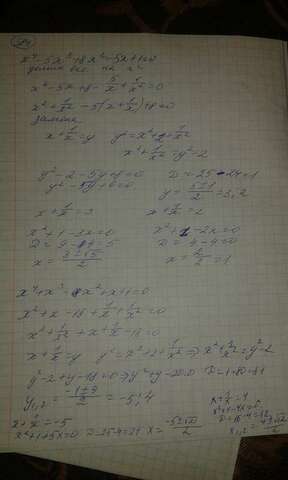 x⁴-5x³+8x²-5x+1=0
делим все на x²
x²-5x+8-5/x+1/x²=0
x²+1/x²-5(x+1/x)+8=0
замена
x+1/x=y y²=x²+2+1/x²
x²+1/x²=y²-2
y²-2-5y+8=0 D=25-24=1
y²-5y+6=0 y=5±1/2=3,2
x+1/x=3 x+1/x=2
x²+1-3x=0 x²+1-2x=0
D=9-4=5 D=4-4=0
x=3±√5/2 x=2/2=1
x²+x-18+1/x+1/x²=0
x²+1/x²+x+1/x-18=0
x+1/x=y y²=x²+2+1/x² ⇒ x²+1/x²=y²-2
y²-2+y-18=0 ⇒ y²+y-20=0 D=1+80=81
y₁,₂=-1±9/2=-5,4
x+1/x=-5 x+1/x=4
x²+1+5x=0 x²+1-4x=0
D=16-4=12